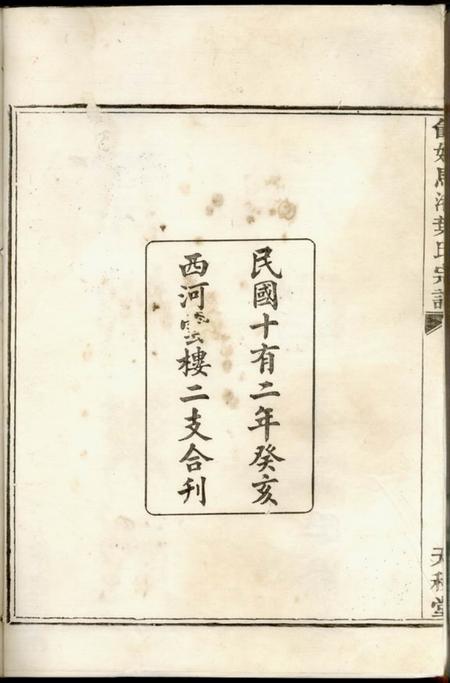 民國十有二年癸亥
西河雲樓二支合刊
氏宗譜
天和堂